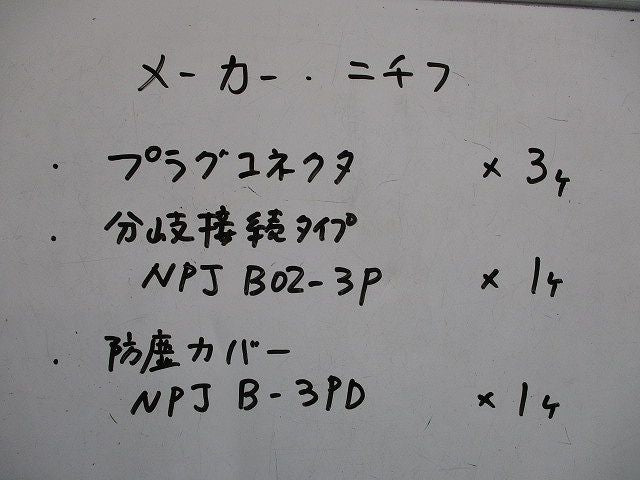 メーカー・ニチフ
・ プラグコネクタ × 3ヶ
・ 分岐接続タイプ
NPJ B02-3P × 1ヶ
・ 防塵カバー
NPJ B-3PD × 1ヶ